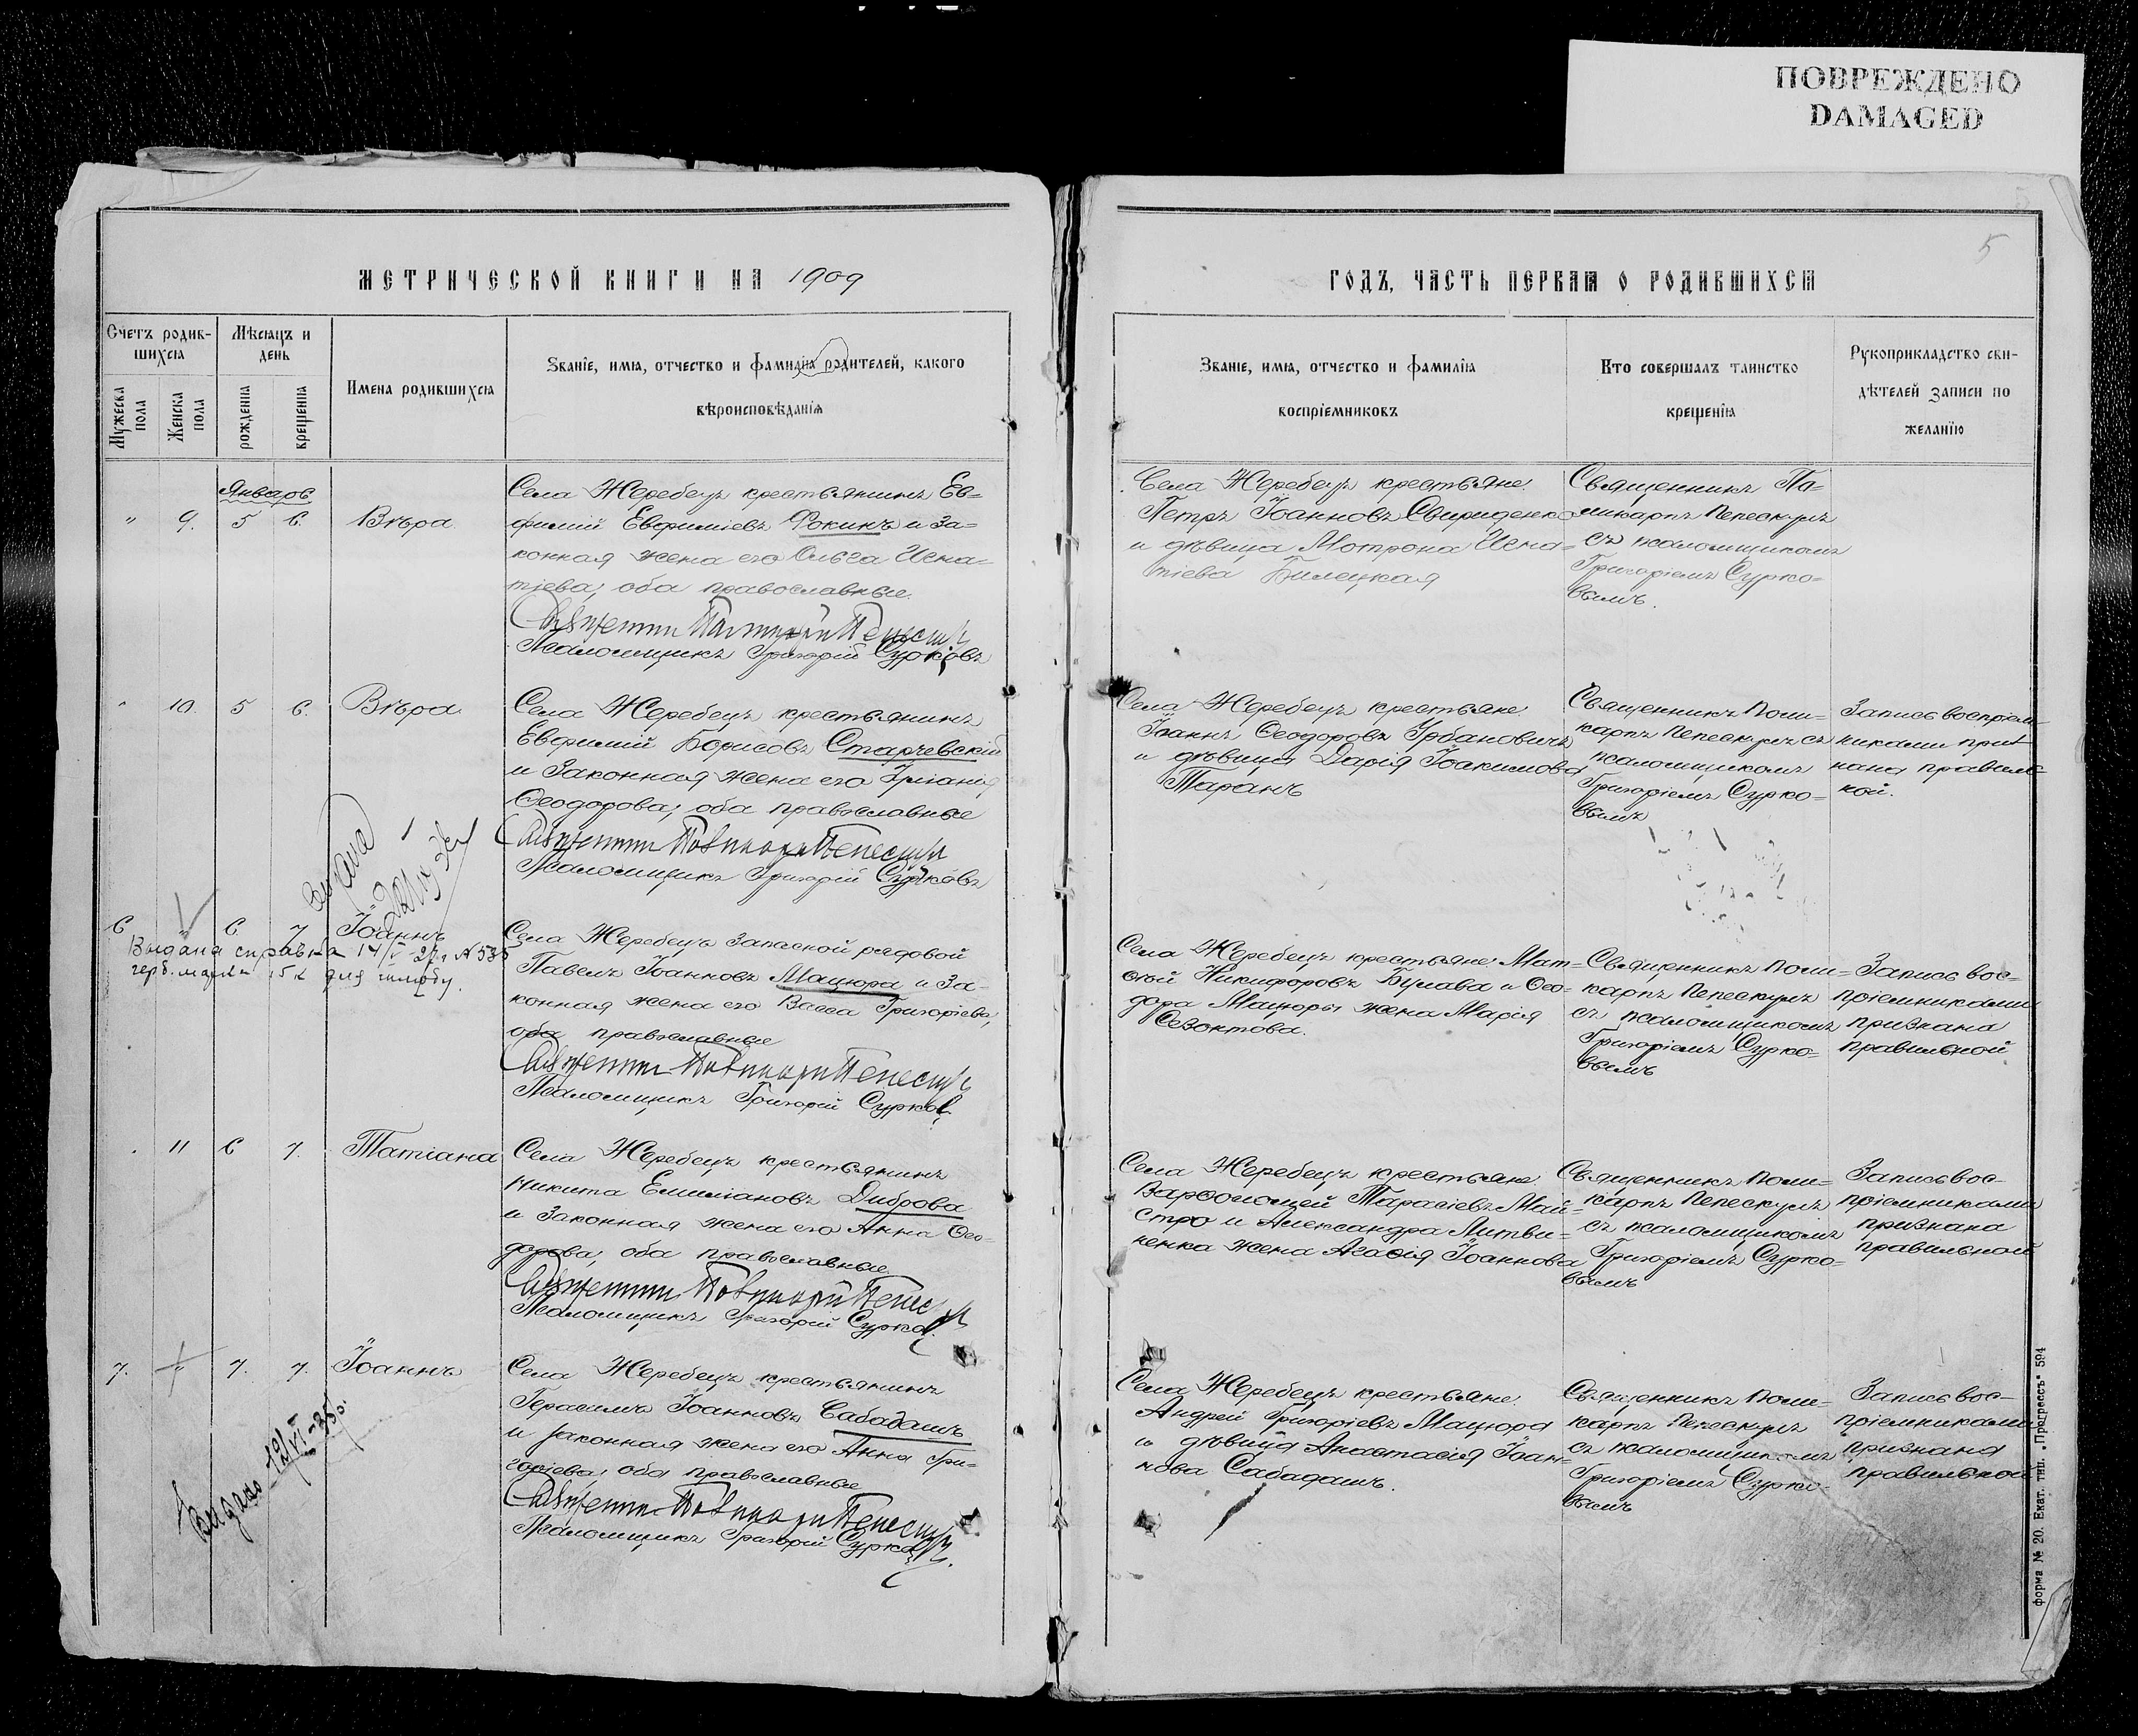 ПОВРЕЖДЕНО
DAMAGED
5
МЕТРИЧЕСКОЙ КНИГИ НА 1909
ГОДЪ, ЧАСТЬ ПЕРВАЯ О РОДИВШИХСЯ
Счетъ родив-
шихся
Мужеска пола
Женска пола
Мѣсяцъ и
день
рожденія
крещенія
Имена родившихся
Званіе, имя, отчество и фамилія родителей, какого
вѣроисповѣданія
Званіе, имя, отчество и фамилія
воспріемниковъ
Кто совершалъ таинство
крещенія
Рукоприкладство сви-
дѣтелей записи по
желанію
Январь
" 9. 5 6. Вѣра
Села Жеребецъ крестьянинъ Ев-
фимій Евфиміевъ Фокинъ и за-
конная жена его Ольга Игна-
тіева, оба православные.
Псаломщикъ Григорій Сурковъ
Села Жеребецъ крестьяне
Петръ Іоанновъ Свириденко
и дѣвица Мотрона Игна-
тіева Билецкая
Священникъ По-
ликарпъ Пепескулъ
съ псаломщикомъ
Григоріемъ Сурко-
вымъ.
" 10. 5 6. Вѣра
Села Жеребецъ крестьянинъ
Евфимій Борисовъ Старчевскій
и законная жена его Іуліанія
Ѳеодорова, оба православные
Псаломщикъ Григорій Сурковъ
Села Жеребецъ крестьяне
Іоаннъ Ѳеодоровъ Урбановичъ
и дѣвица Дарія Іоакимова
Таранъ
Священникъ Поли-
карпъ Пепескулъ съ
псаломщикомъ
Григоріемъ Сурко-
вымъ
Запись воспріем-
никами приз-
нана правиль-
ной.
6 " 6 7 Іоаннъ
Выдана справка 14/V 27 г. № 535
герб. марки 15 к для шлюбу.
Села Жеребецъ запасной рядовой
Павелъ Іоанновъ Мацюра и за-
конная жена его Васса Григоріева,
оба православные
Псаломщикъ Григорій Сурков
Села Жеребецъ крестьяне: Мат-
ѳей Никифоровъ Булава и Ѳео-
дора Мацюры жена Марія
Севактова.
Священникъ Поли-
карпъ Пепескулъ
съ псаломщикомъ
Григоріемъ Сурко-
вымъ
Запись вос-
пріемниками
признана
правильной
" 11 6 7. Татіана
Села Жеребецъ крестьянинъ
Никита Емиліановъ Диброва
и законная жена его Анна Ѳео-
дорова, оба православные.
Псаломщикъ Григорій Сурков.
Села Жеребецъ крестьяне.
Варѳоломей Тарасіевъ Май-
стро и Александра Литви-
ненка жена Агаѳія Іоаннова
Священникъ Поли-
карпъ Пепескулъ
съ псаломщикомъ
Григоріемъ Сурко-
вымъ
Запись вос-
пріемниками
признана
правильной
7. " 7. 7. Іоаннъ
Видано 12/VI-35 р.
Села Жеребецъ крестьянинъ
Герасимъ Іоанновъ Сабадашъ
и законная жена его Анна Гри-
горіева, оба православные
Псаломщикъ Григорій Сурков.
Села Жеребецъ крестьяне.
Андрей Григоріевъ Мацюра
и дѣвица Анастасія Іоан-
нова Сабадашъ.
Священникъ Поли-
карпъ Пепескулъ
съ псаломщикомъ
Григоріемъ Сурко-
вымъ
Запись вос-
пріемниками
признана
правильной
форма № 20. Екат. тип. „Прогрессъ" 594